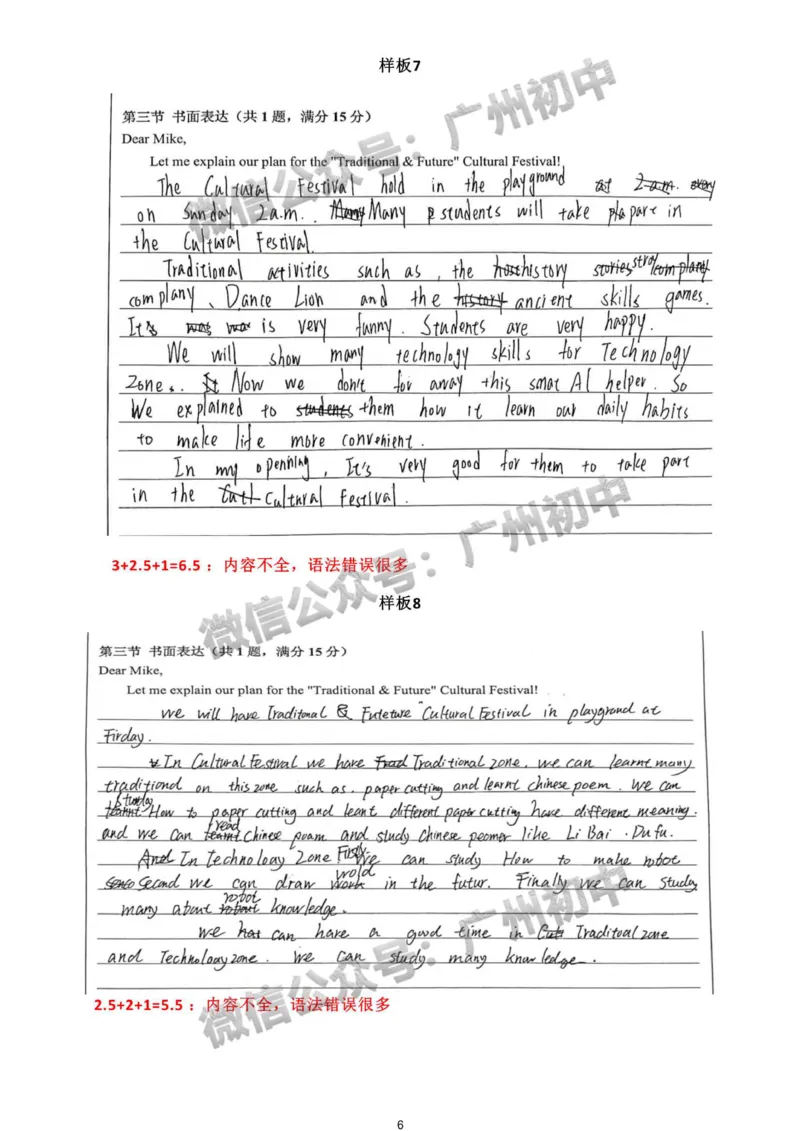 样板7
第三节 书面表达（共1题，满分15分）
Dear Mike,
Let me explain our plan for the "Traditional & Future" Cultural Festival!
The Cultural Festival hold in the playground at 2 a.m.
on Sunday 2a.m.. Many students will take pla part in
the Cultural Festival.
Traditional activities such as, the history stories
complany、Dance Lion and the history ancient skills games.
It's is very funny. Students are very happy.
We will show many technology skills for Technology
Zone.. Now we don't for away this smat AI helper. So
We explained to students them how it learn our daily habits
to make life more convenient.
In my openning, It's very good for them to take part
in the Cultural Festival.
3+2.5+1=6.5：内容不全，语法错误很多
样板8
第三节 书面表达（共1题，满分15分）
Dear Mike,
Let me explain our plan for the "Traditional & Future" Cultural Festival!
we will have Iraditonal & Futeture "Cultural Festival in playgrand at
Firday.
In Cultural Festival we have Traditional zone. we can learnt many
traditiond on this zone such as. paper cutting and learnt chinese poem. we can
study How to paper cutting and leant different paper cutting have different meaning.
and we can read Chinese poam and study Chinese peomer like Li Bai. Du fu.
And In Technoloay Zone Firstly we can study How to make robot
Second we can draw wold in the futur. Finally we can study
many about robot knowledge.
we can have a good time in Traditoal zone
and Technoloay zone. we can study many knowledge.
2.5+2+1=5.5：内容不全，语法错误很多
微信公众号：广州初中
微信公众号：广州初中
微信公众号：广州初中
6